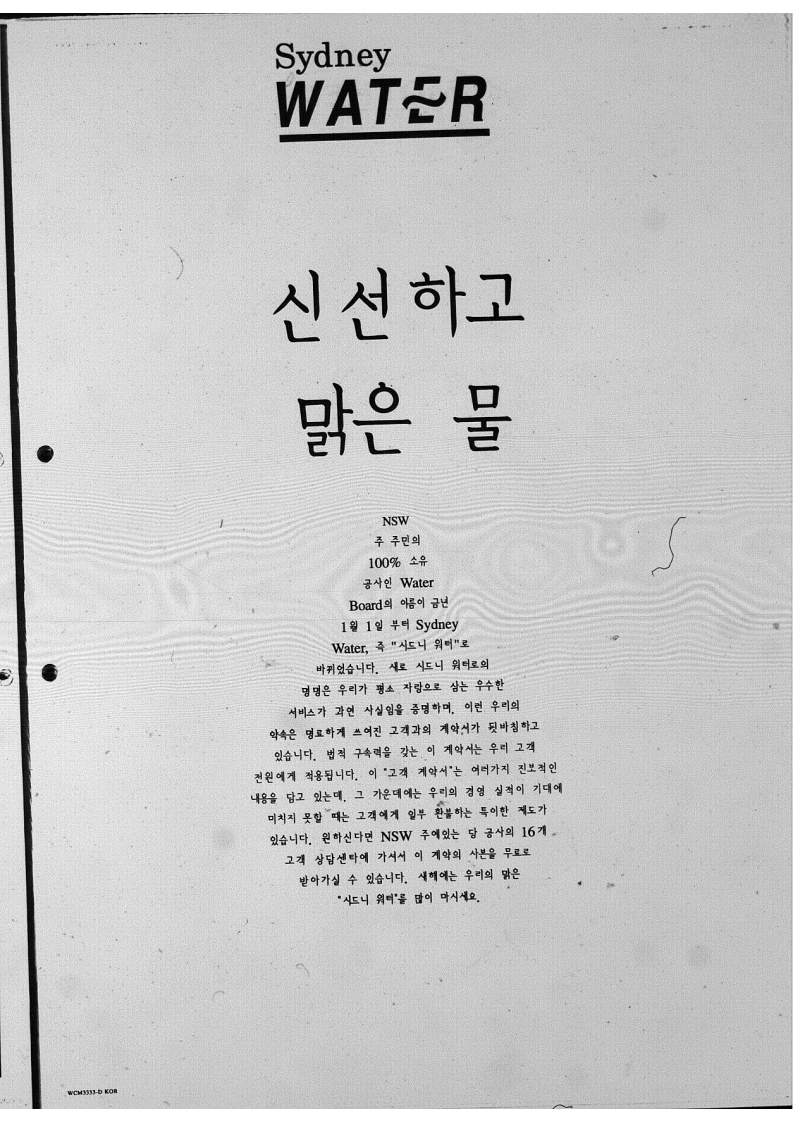 Sydney
WATER
신선하고
맑은 물
NSW
주 주민의
100% 소유
공사인 Water
Board의 이름이 금년
1월 1일 부터 Sydney
Water, 즉 "시드니 워터"로
바뀌었습니다. 새로 시드니 워터로의
명명은 우리가 평소 자랑으로 삼는 우수한
서비스가 과연 사실임을 증명하며, 이런 우리의
약속은 명료하게 쓰여진 고객과의 계약서가 뒷바침하고
있습니다. 법적 구속력을 갖는 이 계약서는 우리 고객
전원에게 적용됩니다. 이 "고객 계약서"는 여러가지 진보적인
내용을 담고 있는데, 그 가운데에는 우리의 경영 실적이 기대에
미치지 못할 때는 고객에게 일부 환불하는 특이한 제도가
있습니다. 원하신다면 NSW 주에있는 당 공사의 16개
고객 상담센타에 가셔서 이 계약의 사본을 무료로
받아가실 수 있습니다. 새해에는 우리의 맑은
"시드니 워터"를 많이 마시세요.
WCM3333-D KOR